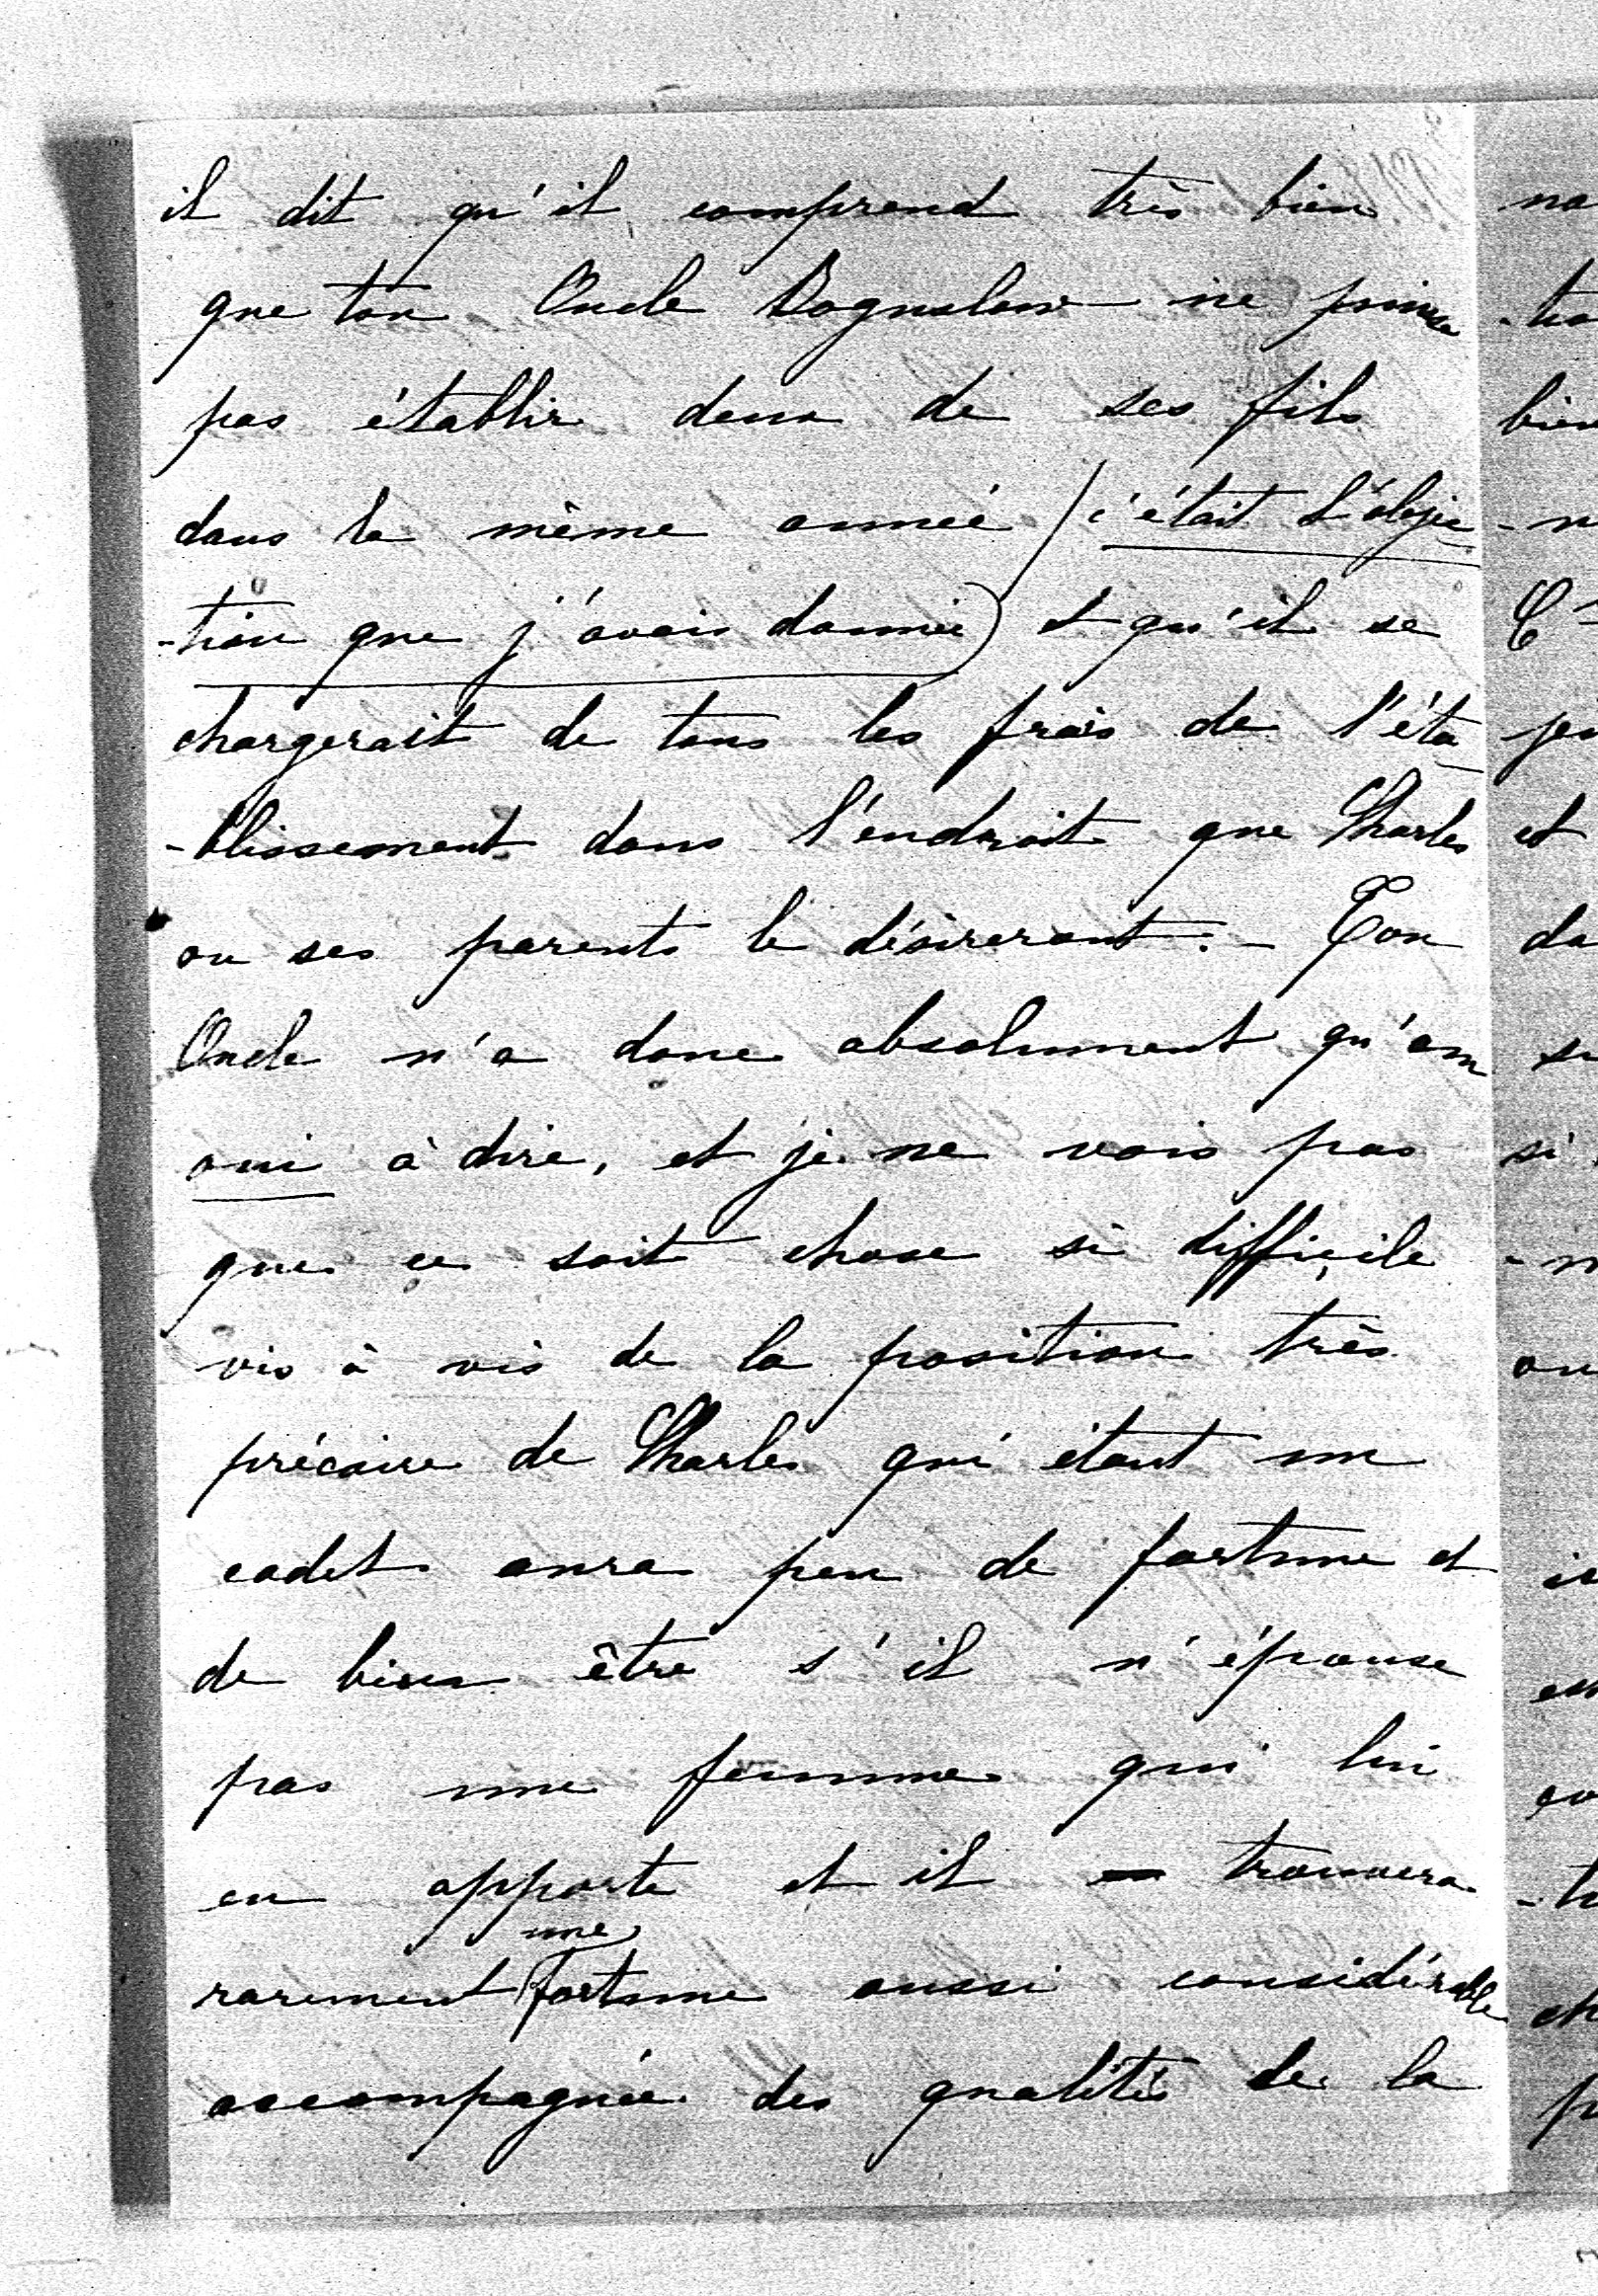 il dit qu'il comprend très bien
que ton Oncle Boguslaw ne puisse
pas établir deux de ses fils
dans la même année (c'était l'objec
-tion que j'avais donnée) et qu'il se
chargerait de tous les frais de l'éta
-blissement dans l'endroit que Charles
ou ses parents le désireront. - Ton
Oncle n'a donc absolument qu'un
oui à dire, et je ne vois pas
que ce soit chose si difficile
vis à vis de la position très
précaire de Charles qui étant un
cadet aura peu de fortune et
de bien être s'il n'épouse
pas une femme qui lui
en apporte et il trouvera
rarement une fortune aussi considérable
accompagnée des qualités de la